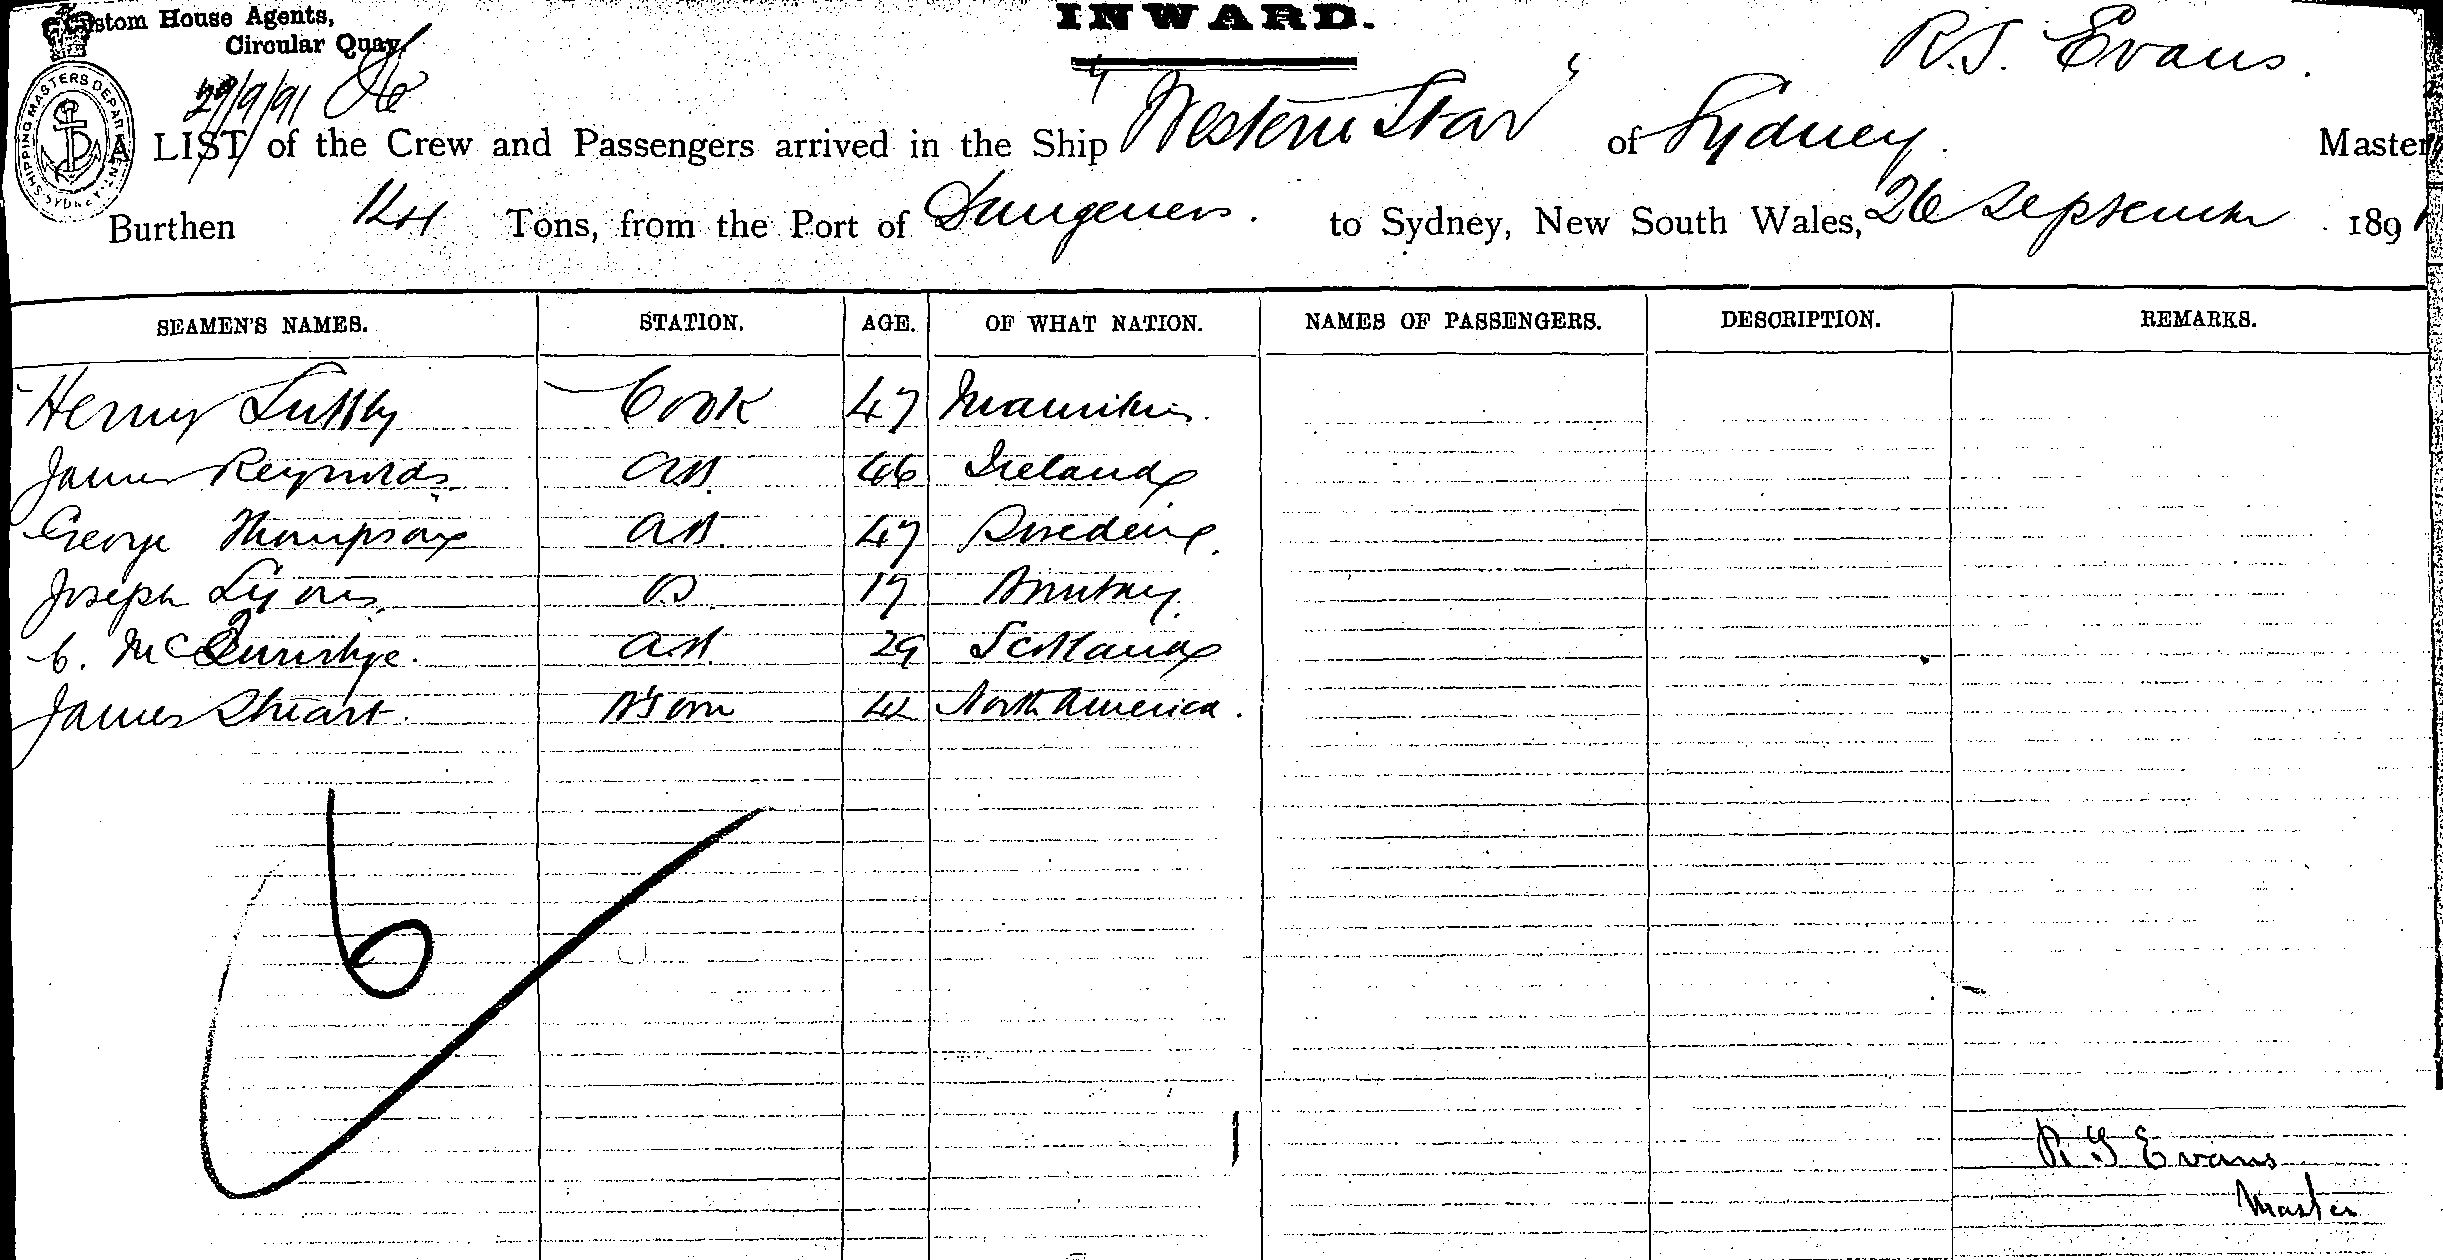 Custom House Agents,
Circular Quay.
INWARD.
R.J. Evans.
29/9/91
SHIPPING MASTERS DEPARTMENT. SYDNEY
A LIST of the Crew and Passengers arrived in the Ship "Western Star" of Sydney. Master
Burthen 124 Tons, from the Port of Dungeness. to Sydney, New South Wales, 26 September 1891
SEAMEN'S NAMES. STATION. AGE. OF WHAT NATION. NAMES OF PASSENGERS. DESCRIPTION. REMARKS.
Henry Cook 47 Mauritius.
James Reynolds AB. 46 Ireland
George Thompson AB. 47 Sweden.
Joseph Lyons OS. 19
C. Mc AB. 29 Scotland
James Stuart. B'swn 42 North America.
6
R J Evans
Master